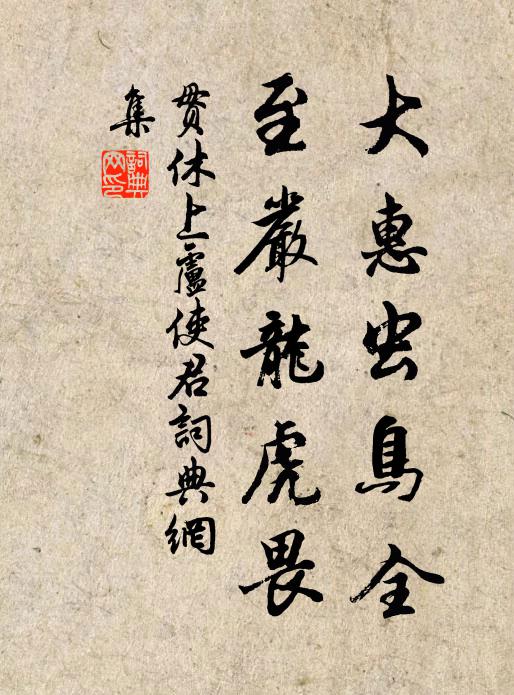 大惠虫鳥全
至嚴龍虎畏
貫休上盧使君詞典網
集
詞典
网印